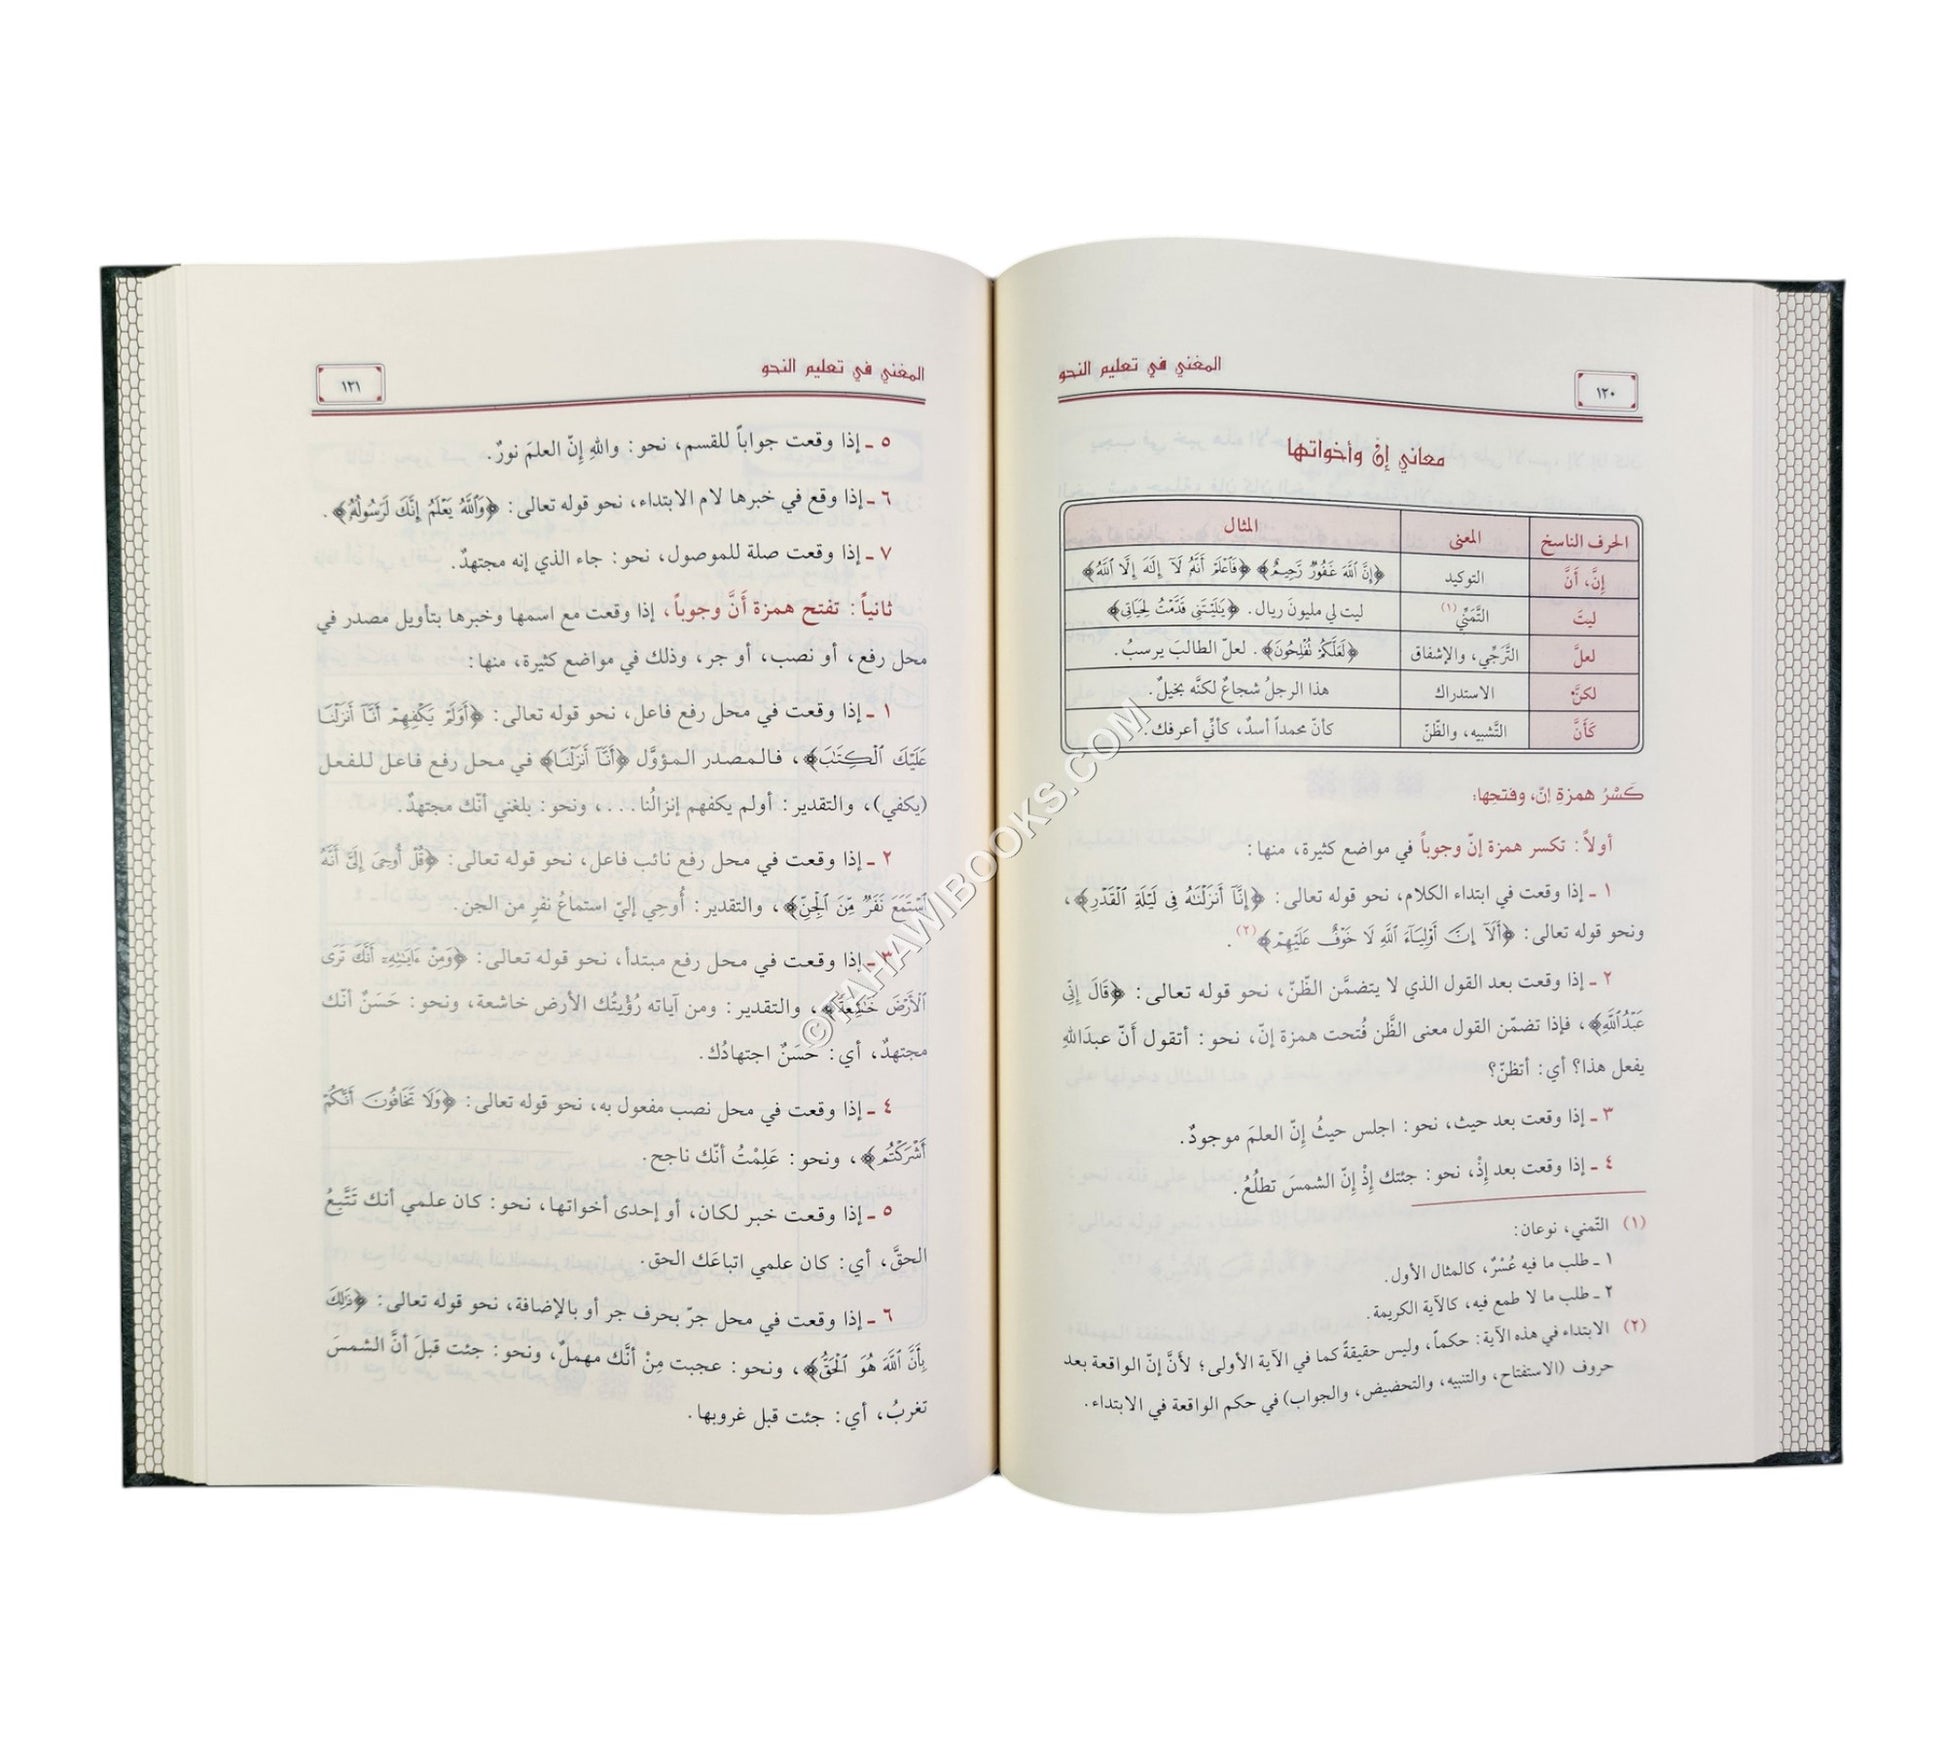 المغني في تعليم النحو
١٢٠
معاني إنّ وأخواتها
الحرف الناسخ المعنى المثال
إنَّ، أَنَّ التوكيد ﴿إِنَّ ٱللَّهَ غَفُورٌ رَّحِيمٌ﴾ ﴿فَٱعْلَمْ أَنَّهُۥ لَآ إِلَٰهَ إِلَّا ٱللَّهُ﴾
ليتَ التَّمَنِّي (١) ليت لي مليونَ ريال. ﴿يَٰلَيْتَنِى قَدَّمْتُ لِحَيَاتِى﴾
لعلَّ التَّرَجِّي، والإشفاق ﴿لَعَلَّكُمْ تُفْلِحُونَ﴾. لعلّ الطالبَ يرسبُ.
لكنَّ الاستدراك هذا الرجلُ شجاعٌ لكنَّه بخيلٌ.
كَأَنَّ التَّشبيه، والظّنّ كأنّ محمداً أسدٌ، كأنِّي أعرفك.
كَسْرُ همزةِ إنّ، وفتحِها:
أولاً: تكسر همزة إنّ وجوباً في مواضع كثيرة، منها:
١ ـ إذا وقعت في ابتداء الكلام، نحو قوله تعالى: ﴿إِنَّآ أَنزَلْنَٰهُ فِى لَيْلَةِ ٱلْقَدْرِ﴾،
ونحو قوله تعالى: ﴿أَلَآ إِنَّ أَوْلِيَآءَ ٱللَّهِ لَا خَوْفٌ عَلَيْهِمْ﴾ (٢).
٢ ـ إذا وقعت بعد القول الذي لا يتضمَّن الظّنّ، نحو قوله تعالى: ﴿قَالَ إِنِّى
عَبْدُ ٱللَّهِ﴾، فإذا تضمّن القول معنى الظَّن فُتحت همزة إنّ، نحو: أتقول أَنّ عبدَالله
يفعل هذا؟ أي: أتظنّ؟
٣ ـ إذا وقعت بعد حيث، نحو: اجلس حيثُ إِنّ العلمَ موجودٌ.
٤ ـ إذا وقعت بعد إِذْ، نحو: جئتك إِذْ إِنّ الشمسَ تطلُعُ.
(١) التّمني، نوعان:
١ ـ طلب ما فيه عُسْرٌ، كالمثال الأول.
٢ ـ طلب ما لا طمع فيه، كالآية الكريمة.
(٢) الابتداء في هذه الآية: حكماً، وليس حقيقةً كما في الآية الأولى؛ لأنَّ إنّ الواقعة بعد
حروف (الاستفتاح، والتنبيه، والتحضيض، والجواب) في حكم الواقعة في الابتداء.
المغني في تعليم النحو
١٢١
٥ ـ إذا وقعت جواباً للقسم، نحو: واللهِ إِنّ العلمَ نورٌ.
٦ ـ إذا وقع في خبرها لام الابتداء، نحو قوله تعالى: ﴿وَٱللَّهُ يَعْلَمُ إِنَّكَ لَرَسُولُهُۥ﴾.
٧ ـ إذا وقعت صلة للموصول، نحو: جاء الذي إنه مجتهدٌ.
ثانياً: تفتح همزة أَنَّ وجوباً، إذا وقعت مع اسمها وخبرها بتأويل مصدر في
محل رفع، أو نصب، أو جر، وذلك في مواضع كثيرة، منها:
١ ـ إذا وقعت في محل رفع فاعل، نحو قوله تعالى: ﴿أَوَلَمْ يَكْفِهِمْ أَنَّآ أَنزَلْنَا
عَلَيْكَ ٱلْكِتَٰبَ﴾، فالمصدر المؤوَّل ﴿أَنَّآ أَنزَلْنَا﴾ في محل رفع فاعل للفعل
(يكفي)، والتقدير: أولم يكفهم إنزالُنا ...، ونحو: بلغني أنّك مجتهدٌ.
٢ ـ إذا وقعت في محل رفع نائب فاعل، نحو قوله تعالى: ﴿قُلْ أُوحِىَ إِلَىَّ أَنَّهُ
ٱسْتَمَعَ نَفَرٌ مِّنَ ٱلْجِنِّ﴾، والتقدير: أُوحِي إليّ استماعُ نفرٍ من الجن.
٣ ـ إذا وقعت في محل رفع مبتدأ، نحو قوله تعالى: ﴿وَمِنْ ءَايَٰتِهِۦٓ أَنَّكَ تَرَى
ٱلْأَرْضَ خَٰشِعَةً﴾، والتقدير: ومن آياته رُؤْيتُك الأرض خاشعة، ونحو: حَسَنٌ أنّك
مجتهدٌ، أي: حَسَنٌ اجتهادُك.
٤ ـ إذا وقعت في محل نصب مفعول به، نحو قوله تعالى: ﴿وَلَا تَخَافُونَ أَنَّكُمْ
أَشْرَكْتُم﴾، ونحو: عَلِمْتُ أنّك ناجح.
٥ ـ إذا وقعت خبر لكان، أو إحدى أخواتها، نحو: كان علمي أنك تَتَّبِعُ
الحقَّ، أي: كان علمي اتباعَك الحق.
٦ ـ إذا وقعت في محل جرّ بحرف جر أو بالإضافة، نحو قوله تعالى: ﴿ذَٰلِكَ
بِأَنَّ ٱللَّهَ هُوَ ٱلْحَقُّ﴾، ونحو: عجبت مِنْ أنَّك مهملٌ، ونحو: جئت قبلَ أنَّ الشمسَ
تغربُ، أي: جئت قبل غروبها.
©TAHAWIBOOKS.COM